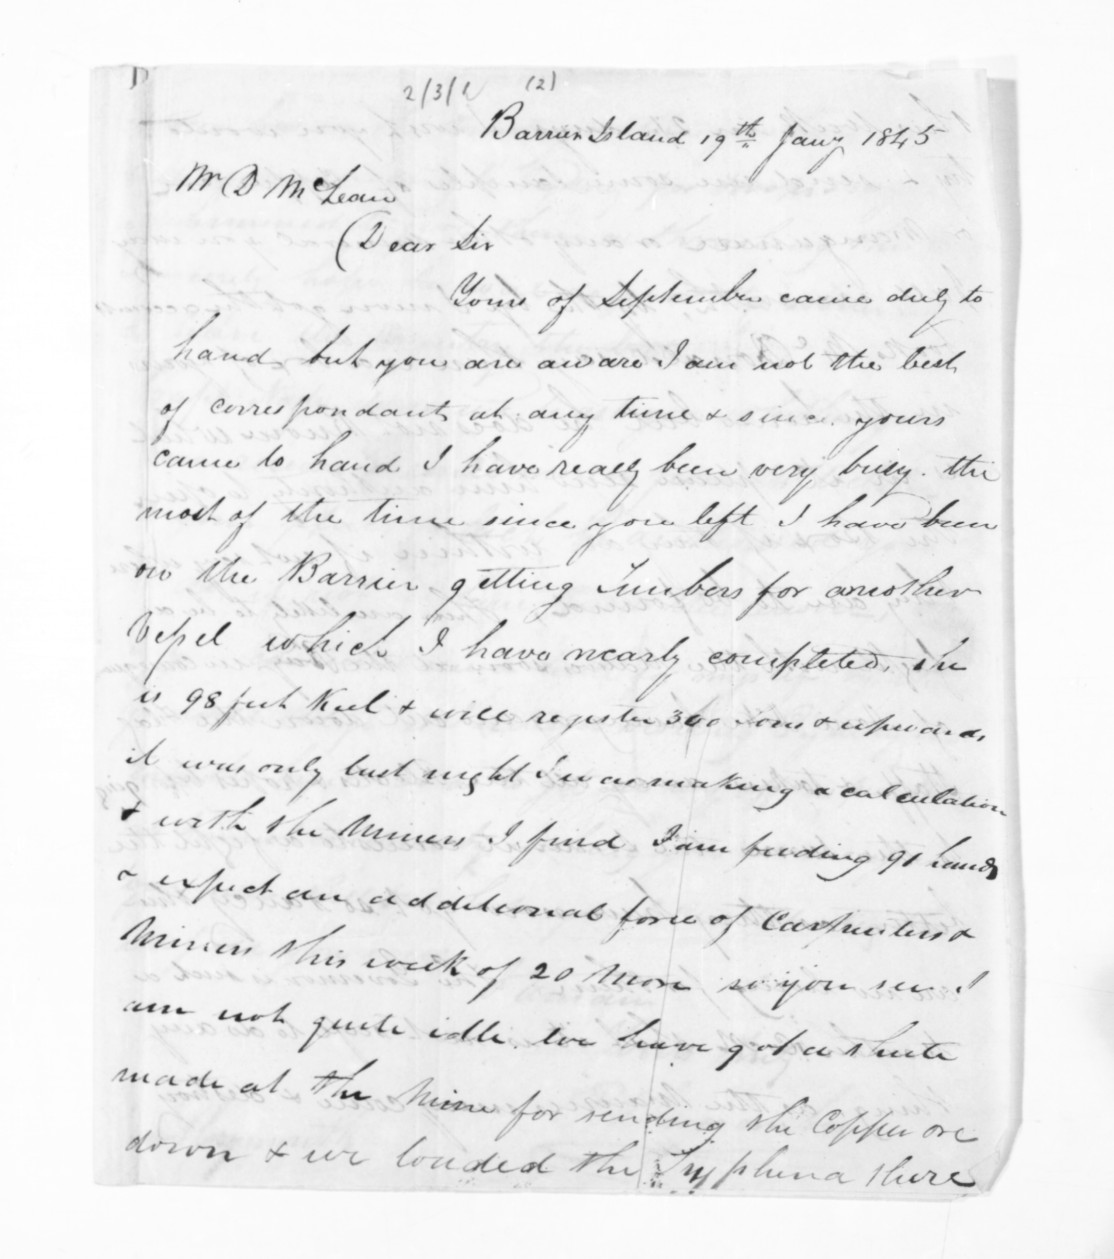 2/3/1 (2)
Barrier Island 19th Jany 1845
Mr D McLean
Dear Sir
Yours of September came duly to
hand but you are aware I am not the best
of correspondants at any time & since yours
came to hand I have really been very busy. the
most of the time since you left I have been
on the Barrier getting Timbers for another
Vessel which I have nearly completed. She
is 98 feet Keel & will register 300 tons & upwards
it was only last night I was making a calculation
& with the Miners I find I am feeding 91 hands
& expect an additional force of Carpenters &
Miners this week of 20 More so you see I
am not quite idle. We have got a shute
made at the Mine for sending the Copper ore
down & we loaded the Tryphena there